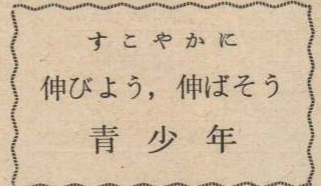 すこやかに
伸びよう，伸ばそう
青少年